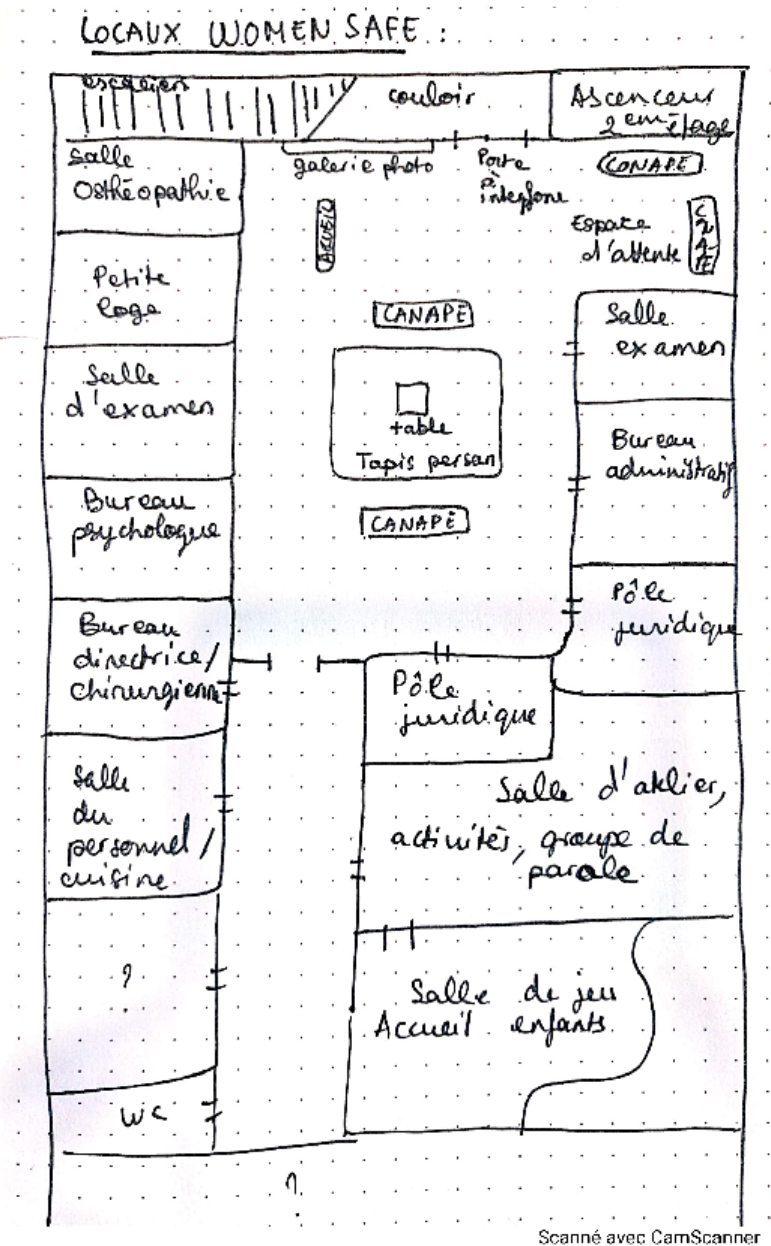 LOCAUX WOMEN SAFE :
escaliers
couloir
Ascenceur
2em étage
Salle
Osthéopathie
galerie photo
Porte
à
intefone
CANAPE
ACCUEIL
Espace
d'attente
CANAPE
Petite
loge
CANAPE
Salle
examen
Salle
d'examen
table
Tapis persan
Bureau
administratif
Bureau
psychologue
CANAPÉ
Pôle
juridique
Bureau
directrice/
chirurgienne
Pôle
juridique
Salle
du
personnel/
cuisine
Salle d'atelier,
activités, groupe de
parole
?
Salle de jeu
Accueil enfants
WC
?
Scanné avec CamScanner